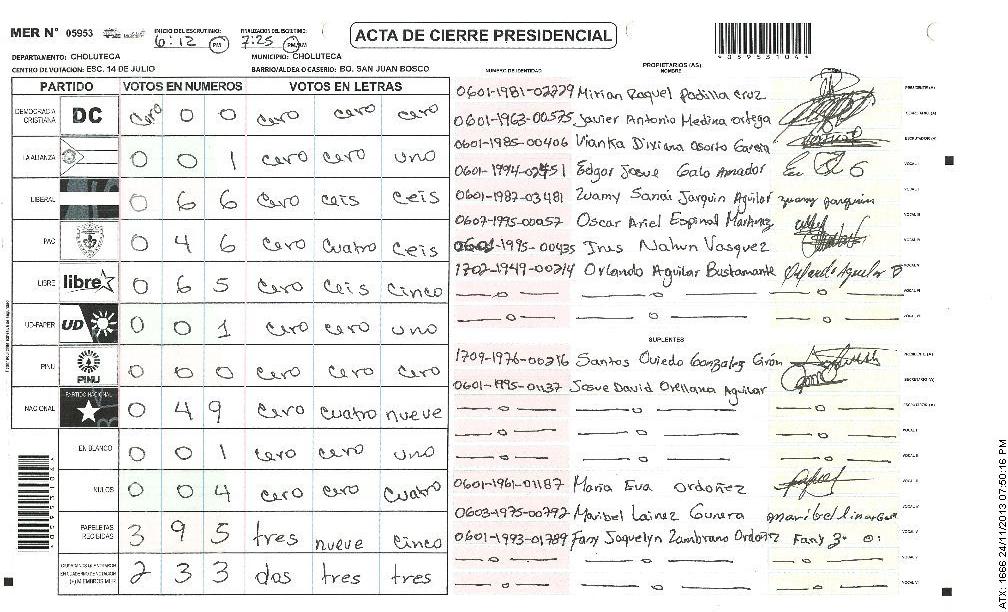 MER N° 05953
INICIO DEL ESCRUTINIO: FINALIZACION DEL ESCRUTINIO:
6:12 PM 7:25 PM/AM
ACTA DE CIERRE PRESIDENCIAL
059531044
DEPARTAMENTO: CHOLUTECA MUNICIPIO: CHOLUTECA
CENTRO DE VOTACION: ESC. 14 DE JULIO BARRIO/ALDEA O CASERIO: BO. SAN JUAN BOSCO
PARTIDO VOTOS EN NUMEROS VOTOS EN LETRAS
DEMOCRACIA CRISTIANA DC Cero 0 0 cero cero cero
LA ALIANZA 0 0 1 cero cero uno
LIBERAL 0 6 6 cero ceis ceis
PAC 0 4 6 cero cuatro ceis
LIBRE libre 0 6 5 cero ceis cinco
UD-FAPER UD 0 0 1 cero cero uno
PINU PINU 0 0 0 cero cero cero
NACIONAL PARTIDO NACIONAL 0 4 9 cero cuatro nueve
EN BLANCO 0 0 1 cero cero uno
NULOS 0 0 4 cero cero cuatro
PAPELETAS RECIBIDAS 3 9 5 tres nueve cinco
(+) MIEMBROS MER 2 3 3 dos tres tres
NUMERO DE IDENTIDAD PROPIETARIOS (AS) NOMBRE
0601-1981-02229 Mirian Raquel Padilla Cruz PRESIDENTE (A)
0601-1963-00575 Javier Antonio Medina Ortega SECRETARIO (A)
0601-1985-00406 Vianka Dixiana Osorto Garcia ESCRUTADOR (A)
0601-1994-02451 Edgar Josue Galo Amador VOCAL I
0601-1987-03481 Zuamy Sanai Jarquin Aguilar zuamy jarquin VOCAL II
0607-1995-00057 Oscar Ariel Espinal Martinez VOCAL III
0601-1995-00435 Ines Nahun Vasquez VOCAL IV
1702-1949-00214 Orlando Aguilar Bustamante Orlando Aguilar B VOCAL V
VOCAL VI
VOCAL VII
SUPLENTES
1709-1976-00216 Santos Oviedo Gonzales Girón PRESIDENTE (A)
0601-1995-01137 Josue David Orellana Aguilar SECRETARIO (A)
ESCRUTADOR (A)
VOCAL I
VOCAL II
0601-1961-01187 Maria Eva Ordoñez
0603-1975-00792 Maribel Lainez Gunera
0601-1993-01789 Fany Jaquelyn Zambrano Ordoñez Fany Z. O.
ATX: 1666 24/11/2013 07:50:16 PM